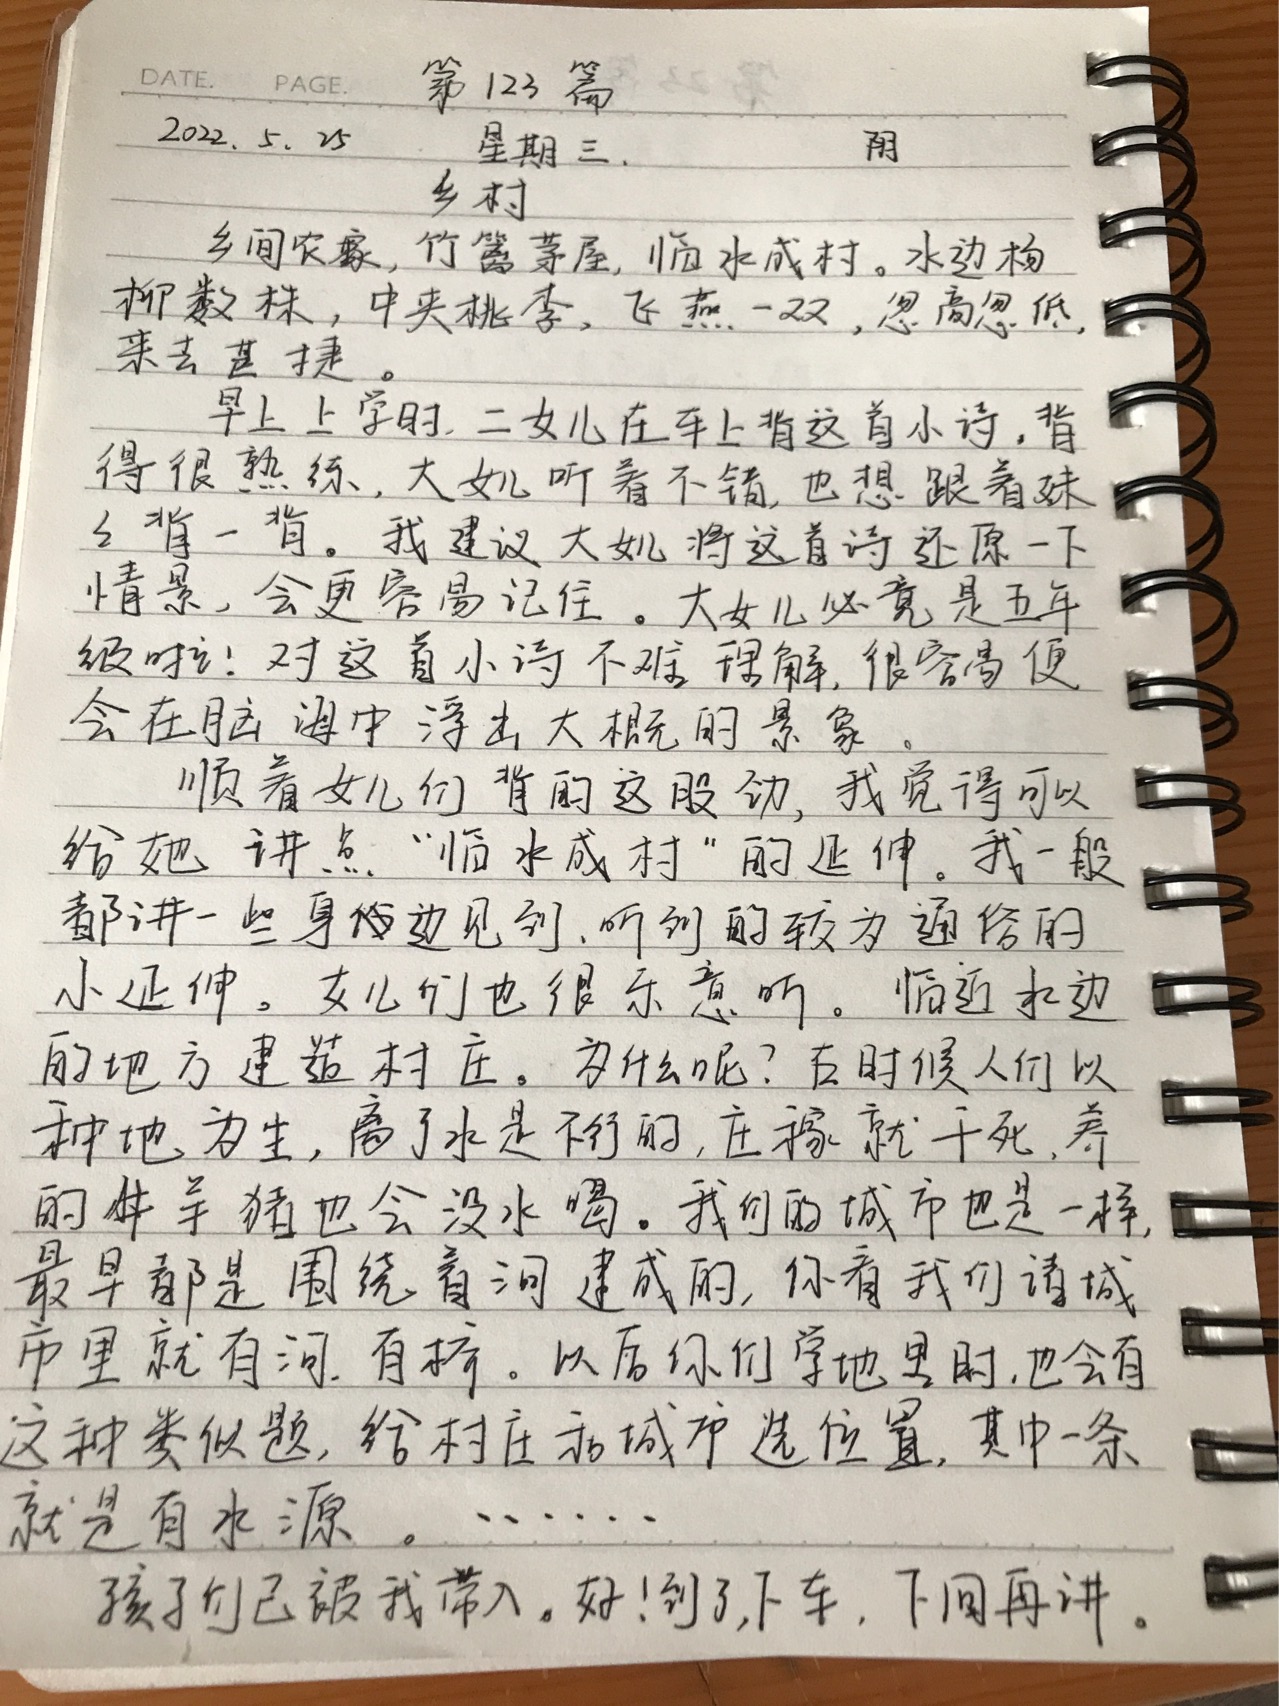 DATE. PAGE. 第123篇
2022.5.25 星期三. 阴
乡村
乡间农家,竹篱茅屋,临水成村。水边杨
柳数株,中夹桃李,飞燕一双,忽高忽低,
来去甚捷。
早上上学时.二女儿在车上背这首小诗,背
得很熟练,大女儿听着不错,也想跟着妹
々背一背。我建议大女儿将这首诗还原一下
情景,会更容易记住。大女儿必竟是五年
级啦!对这首小诗不难理解,很容易便
会在脑海中浮出大概的景象。
顺着女儿们背的这股劲,我觉得可以
给她讲点“临水成村”的延伸。我一般
都讲一些身边见到、听到的较为通俗的
小延伸。女儿们也很乐意听。临近水边
的地方建造村庄。为什么呢?古时候人们以
种地为生,离了水是不行的,庄稼就干死,养
的牛羊猪也会没水喝。我们的城市也是一样,
最早都是围绕着河建成的,你看我们诸城
市里就有河.有桥。以后你们学地里时,也会有
这种类似题,给村庄和城市选位置,其中一条
就是有水源。......
孩子们已被我带入。好!到了,下车,下回再讲。